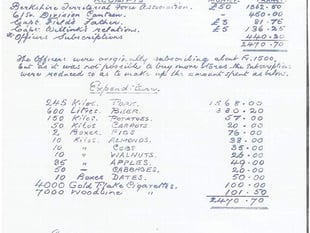 Berkshire Territorial Force Association. £50 1362.50
6/Sr. Division Canteen. 450.00
Capt. Field's Father. £3 81.75
Capt. Willink's relations. £5 136.25
* Officers Subscriptions 440.20
2470.70
The Officers were originally subscribing about Fr.1500,
but as it was not possible to buy more stores the subscriptions
were reduced so as to make up the amount spent as below.
Expenditure.
245 Kilos. Pork. 1568.00
600 Litres. Beer 330.20
150 Kilos. Potatoes. 57.00
50 Kilos Carrots 20.00
2 Boxes. Figs 76.00
10 Kilos. Almonds. 38.00
10 " Cobs 35.00
10 " Walnuts. 26.00
85 " Apples. 49.00
50 - Cabbages. 20.00
10 Boxes Dates. 50.00
4000 Gold Flake Cigarettes. 100.00
7000 Woodbine " 101.50
2470.70